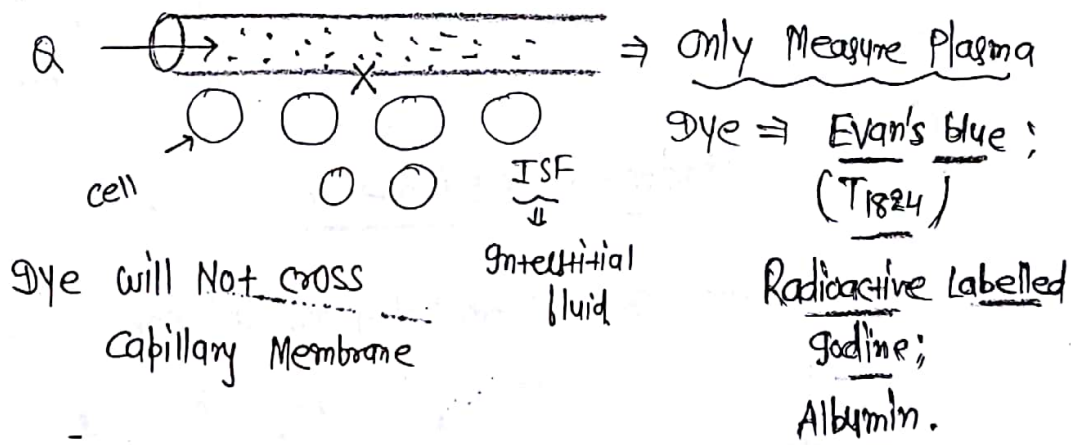 Q → ⇒ Only Measure Plasma
Dye ⇒ Evan's blue;
(T1824)
cell
ISF
⇓
Interstitial
fluid
Dye will Not cross
Capillary Membrane
Radioactive Labelled
Iodine;
Albumin.